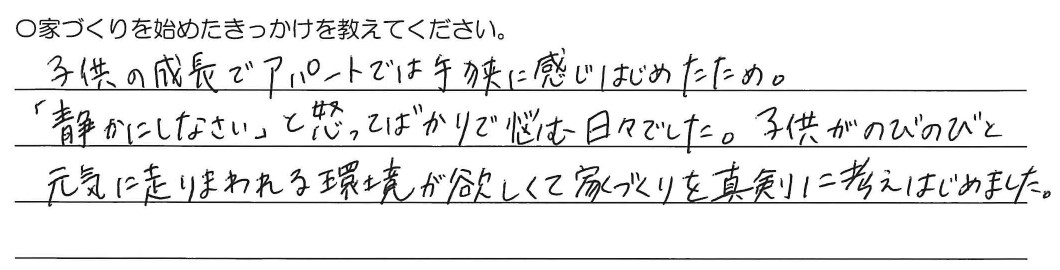 〇家づくりを始めたきっかけを教えてください。
子供の成長でアパートでは手狭に感じはじめたため。
「静かにしなさい」と怒ってばかりで悩む日々でした。子供がのびのびと
元気に走りまわれる環境が欲しくて家づくりを真剣に考えはじめました。